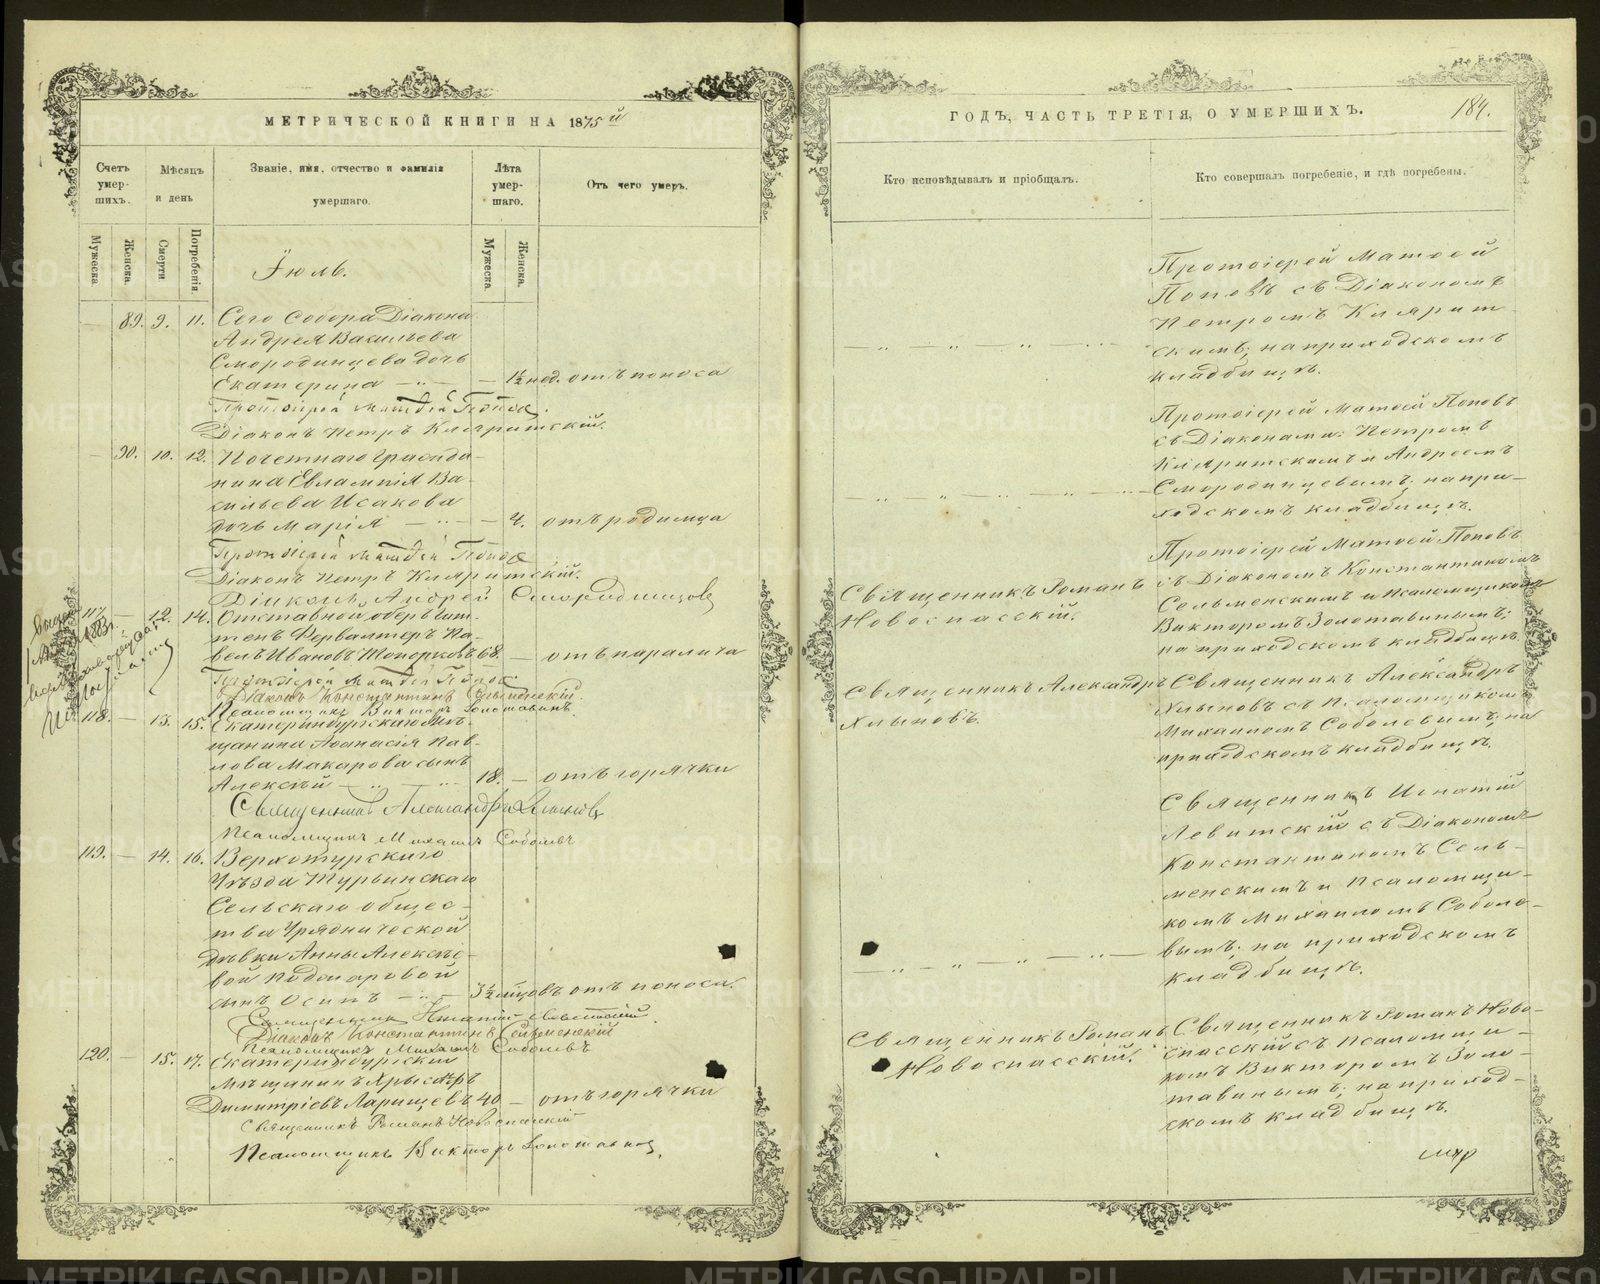 МЕТРИЧЕСКОЙ КНИГИ НА 1875й
Счетъ умер-шихъ.
Мѣсяцъ и день
Званіе, имя, отчество и фамилія умершаго.
Лѣта умер-шаго.
Отъ чего умеръ.
Мужеска.
Женска.
Смерти
Погребенія.
Мужеска.
Женска.
Іюль.
— 89. 9. 11. Сего Собора Діакона
Андрея Васильева
Смородинцева дочь
Екатерина — 1½ нед. отъ поноса
Протоіерей Матѳей Поповъ.
Діаконъ Петръ Кляритскій.
— 90. 10. 12. Почетнаго Гражда-
нина Евлампія Ва-
сильева Исакова
дочь Марія — 4. отъ родимца
Протоіерей Матѳей Поповъ
Діаконъ Петръ Кляритскій.
Діаконъ Андрей Смородинцовъ
117. — 12. 14. Отставной оберъ гит-
тенъ Фервалтеръ Па-
велъ Ивановъ Топорковъ 68. — отъ паралича
Протоіерей Матѳей Поповъ
Діаконъ Константинъ Сельменскій.
Псаломщикъ Викторъ Золотавинъ.
118. — 13. 15. Екатеринбургскаго мѣ-
щанина Аѳанасія Пав-
лова Макарова сынъ
Алексѣй — 18. — отъ горячки
Священникъ Александръ Хлыновъ
Псаломщикъ Михаилъ Соболевъ
119. — 14. 16. Верхотурскаго
Уѣзда Турьинскаго
Сельскаго общес-
тва Уряднической
дѣвки Анны Алексѣе-
вой Подкаровой
сынъ Осипъ — 3½ мѣцовъ отъ поноса.
Священникъ Игнатій Левитскій
Діаконъ Константинъ Сельменскій
Псаломщикъ Михаилъ Соболевъ
120. — 15. 17. Екатеринбургскій
Мѣщанинъ
Димитріевъ Ларищевъ 40 — отъ горячки
Священникъ Романъ Новоспасскій
Псаломщикъ Викторъ Золотавинъ.
ГОДЪ, ЧАСТЬ ТРЕТІЯ, О УМЕРШИХЪ.
184.
Кто исповѣдывалъ и пріобщалъ.
Кто совершалъ погребеніе, и гдѣ погребены.
Протоіерей Матѳей
Поповъ съ Діакономъ
Петромъ Клярит-
скимъ; на приходскомъ
кладбищѣ.
Протоіерей Матѳей Поповъ
съ Діаконами: Петромъ
Кляритскимъ и Андреемъ
Смородинцевымъ; на при-
ходскомъ кладбищѣ.
Священникъ Романъ
Новоспасскій.
Протоіерей Матѳей Поповъ
съ Діакономъ Константиномъ
Сельменскимъ и Псаломщикомъ
Викторомъ Золотавинымъ;
на приходскомъ кладбищѣ.
Священникъ Александръ
Хлыновъ.
Священникъ Александръ
Хлыновъ съ Псаломщикомъ
Михаиломъ Соболевымъ; на
приходскомъ кладбищѣ.
Священникъ Игнатій
Левитскій съ Діакономъ
Константиномъ Сель-
менскимъ и Псаломщи-
комъ Михаиломъ Соболе-
вымъ; на приходскомъ
кладбищѣ.
Священникъ Романъ
Новоспасскій.
Священникъ Романъ Ново-
спасскій съ Псаломщи-
комъ Викторомъ Золо-
тавинымъ; на приход-
скомъ кладбищѣ.
METRIKI.GASO-URAL.RU